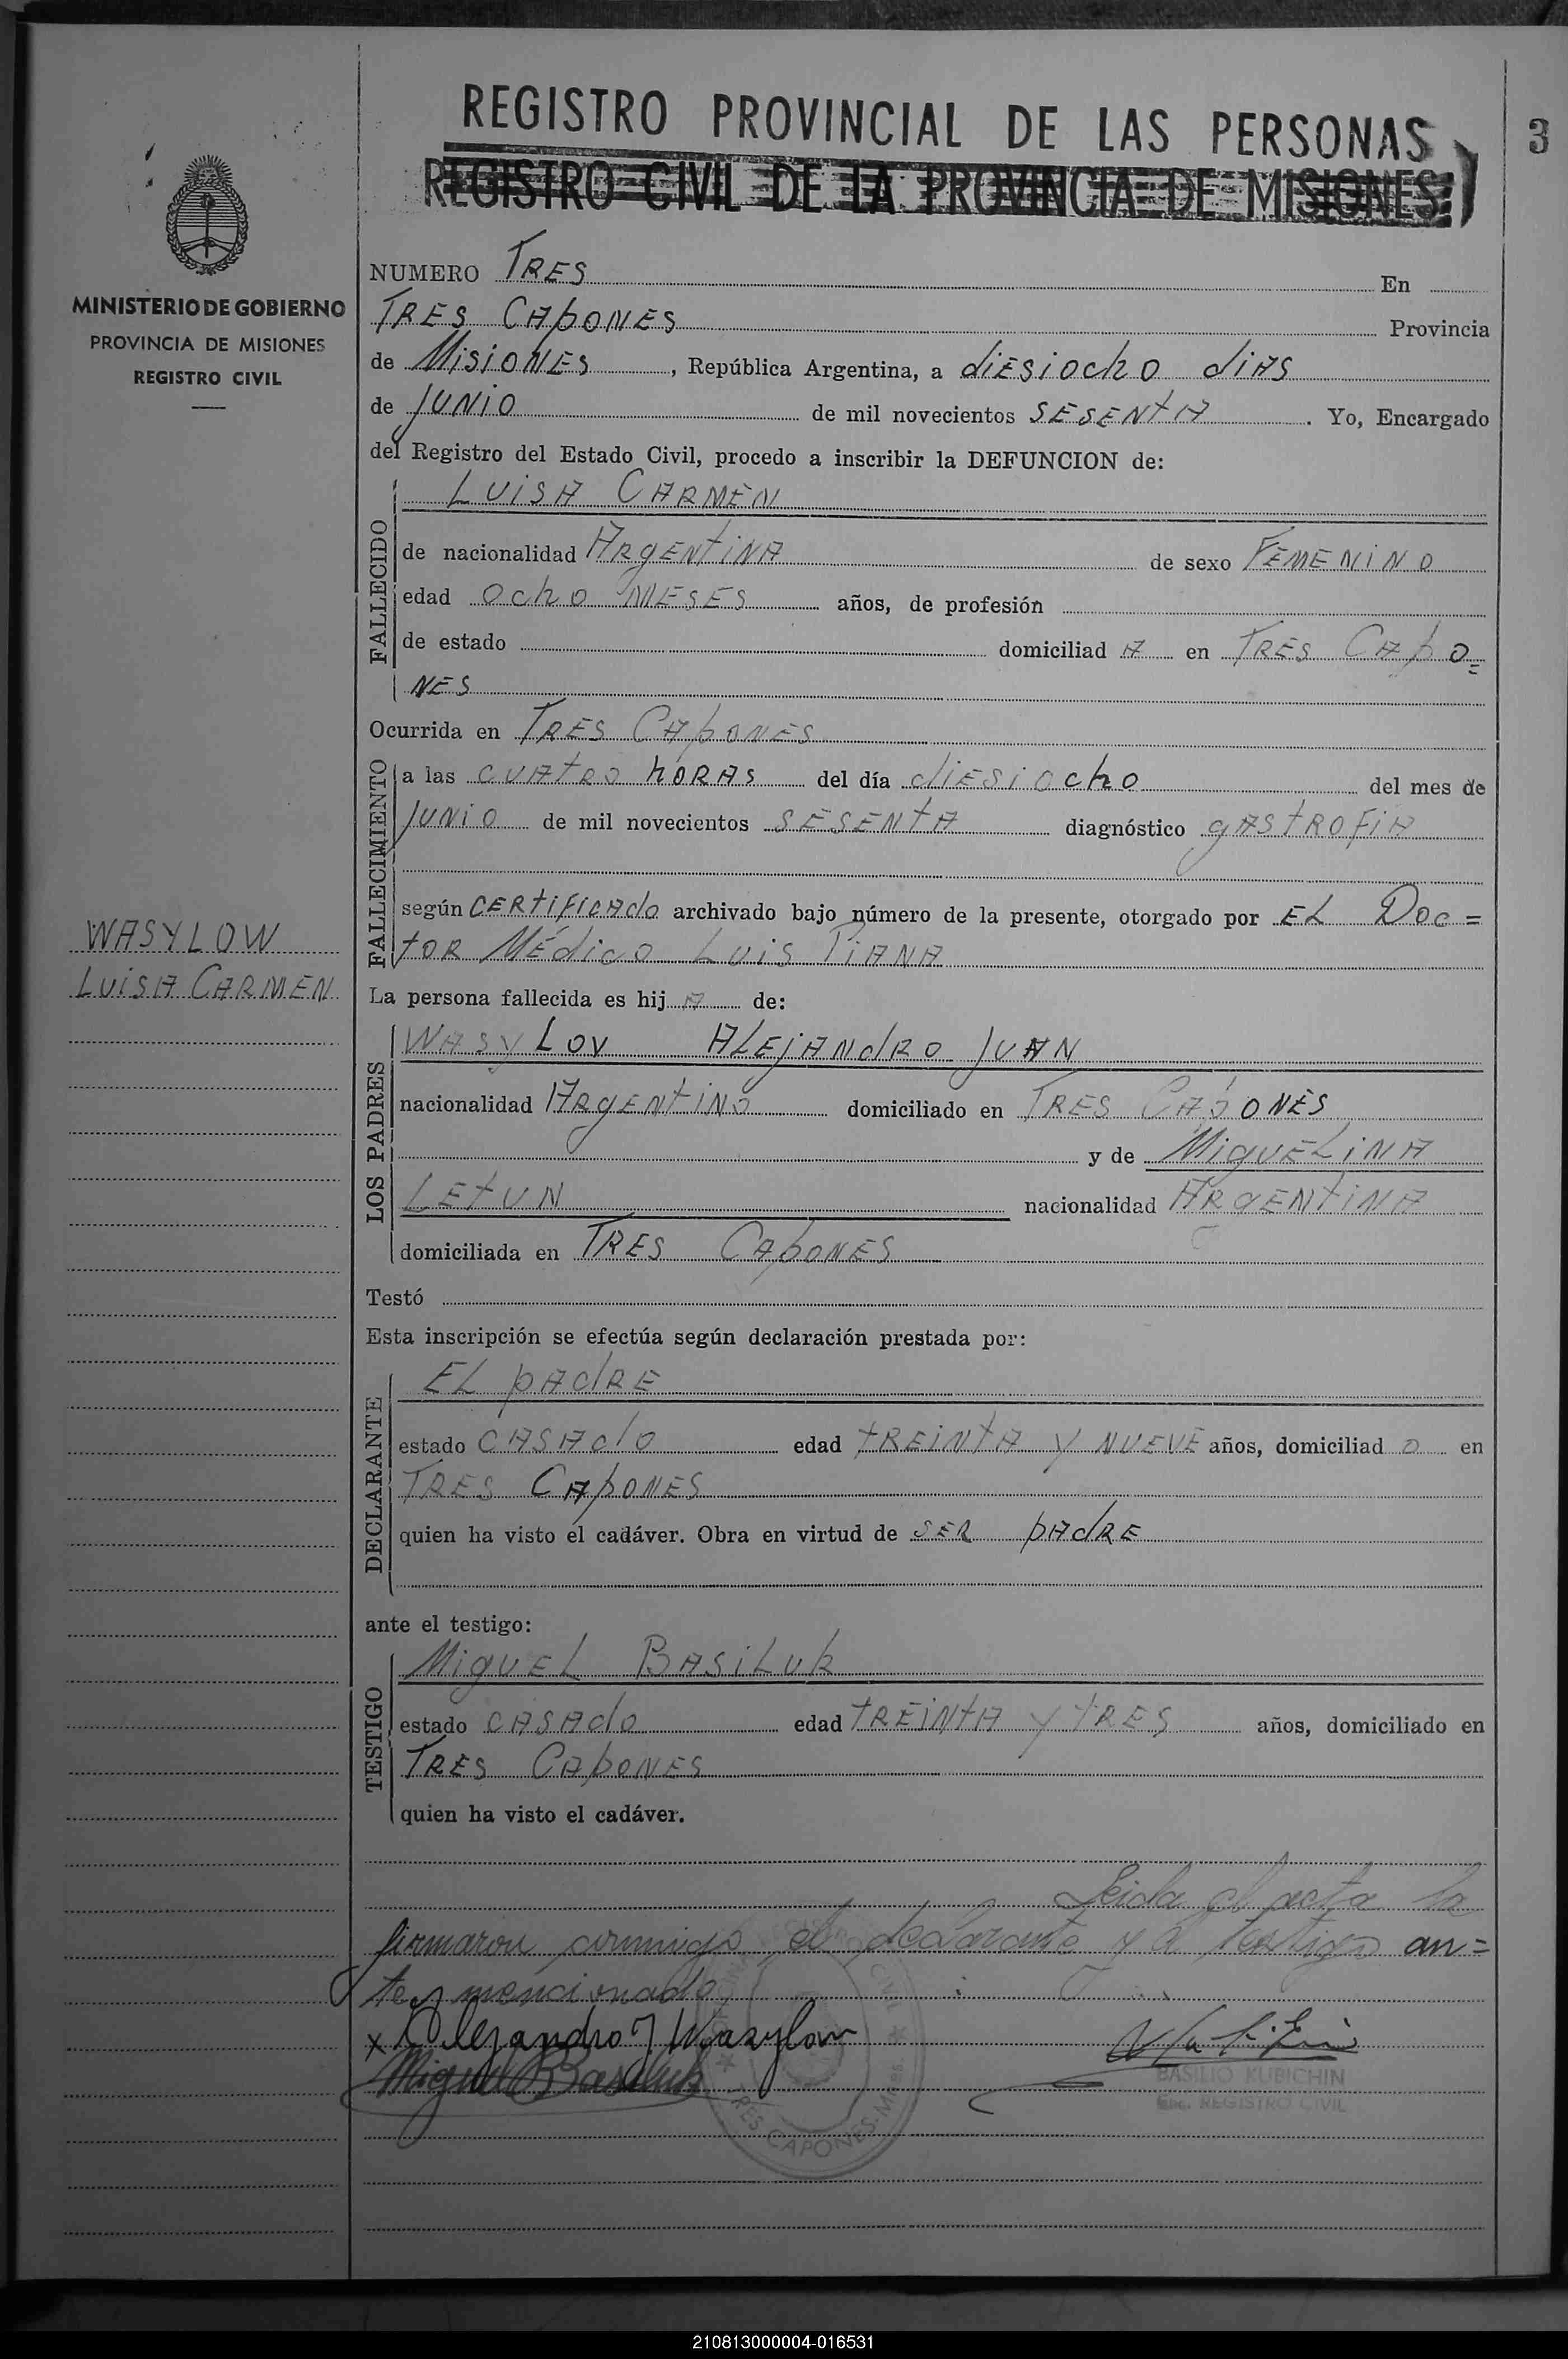 REGISTRO PROVINCIAL DE LAS PERSONAS
3
REGISTRO CIVIL DE LA PROVINCIA DE MISIONES
MINISTERIO DE GOBIERNO
PROVINCIA DE MISIONES
REGISTRO CIVIL
NUMERO TRES En
TRES CAPONES Provincia
de MISIONES, República Argentina, a diESiocho diAS
de JUNIO de mil novecientos SESENTA. Yo, Encargado
del Registro del Estado Civil, procedo a inscribir la DEFUNCION de:
FALLECIDO
LUISA CARMEN
de nacionalidad ARGENTINA de sexo FEMENINO
edad OCHO MESES años, de profesión
de estado domiciliad A en TRES CAPO=
NES
Ocurrida en TRES CAPONES
FALLECIMIENTO
a las CUATRO HORAS del día diESiocho del mes de
JUNIO de mil novecientos SESENTA diagnóstico GASTROFIA
según CERTIFICADO archivado bajo número de la presente, otorgado por EL DOC=
TOR MÉDICO LUIS PIANA
WASYLOW
LUISA CARMEN
La persona fallecida es hij A de:
LOS PADRES
WASYLOV ALEJANDRO JUAN
nacionalidad ARGENTINO domiciliado en TRES CAPONES
y de MIGUELINA
LETUN nacionalidad ARGENTINA
domiciliada en TRES CAPONES
Testó
Esta inscripción se efectúa según declaración prestada por:
DECLARANTE
EL PADRE
estado CASADO edad TREINTA Y NUEVE años, domiciliad O en
TRES CAPONES
quien ha visto el cadáver. Obra en virtud de SER PADRE
ante el testigo:
TESTIGO
MIGUEL BASILUK
estado CASADO edad TREINTA Y TRES años, domiciliado en
TRES CAPONES
quien ha visto el cadáver.
Leida el acta la
firmaron conmigo el declarante y el testigo an=
tes mencionado
x Alejandro J Wasylow
Miguel Basiluk
BASILIO KUBICHIN
Enc. REGISTRO CIVIL
TRES CAPONES-Mnes.
210813000004-016531